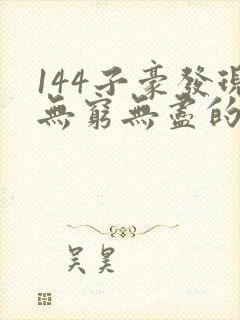 144子豪發現
無窮無盡的
吴昊